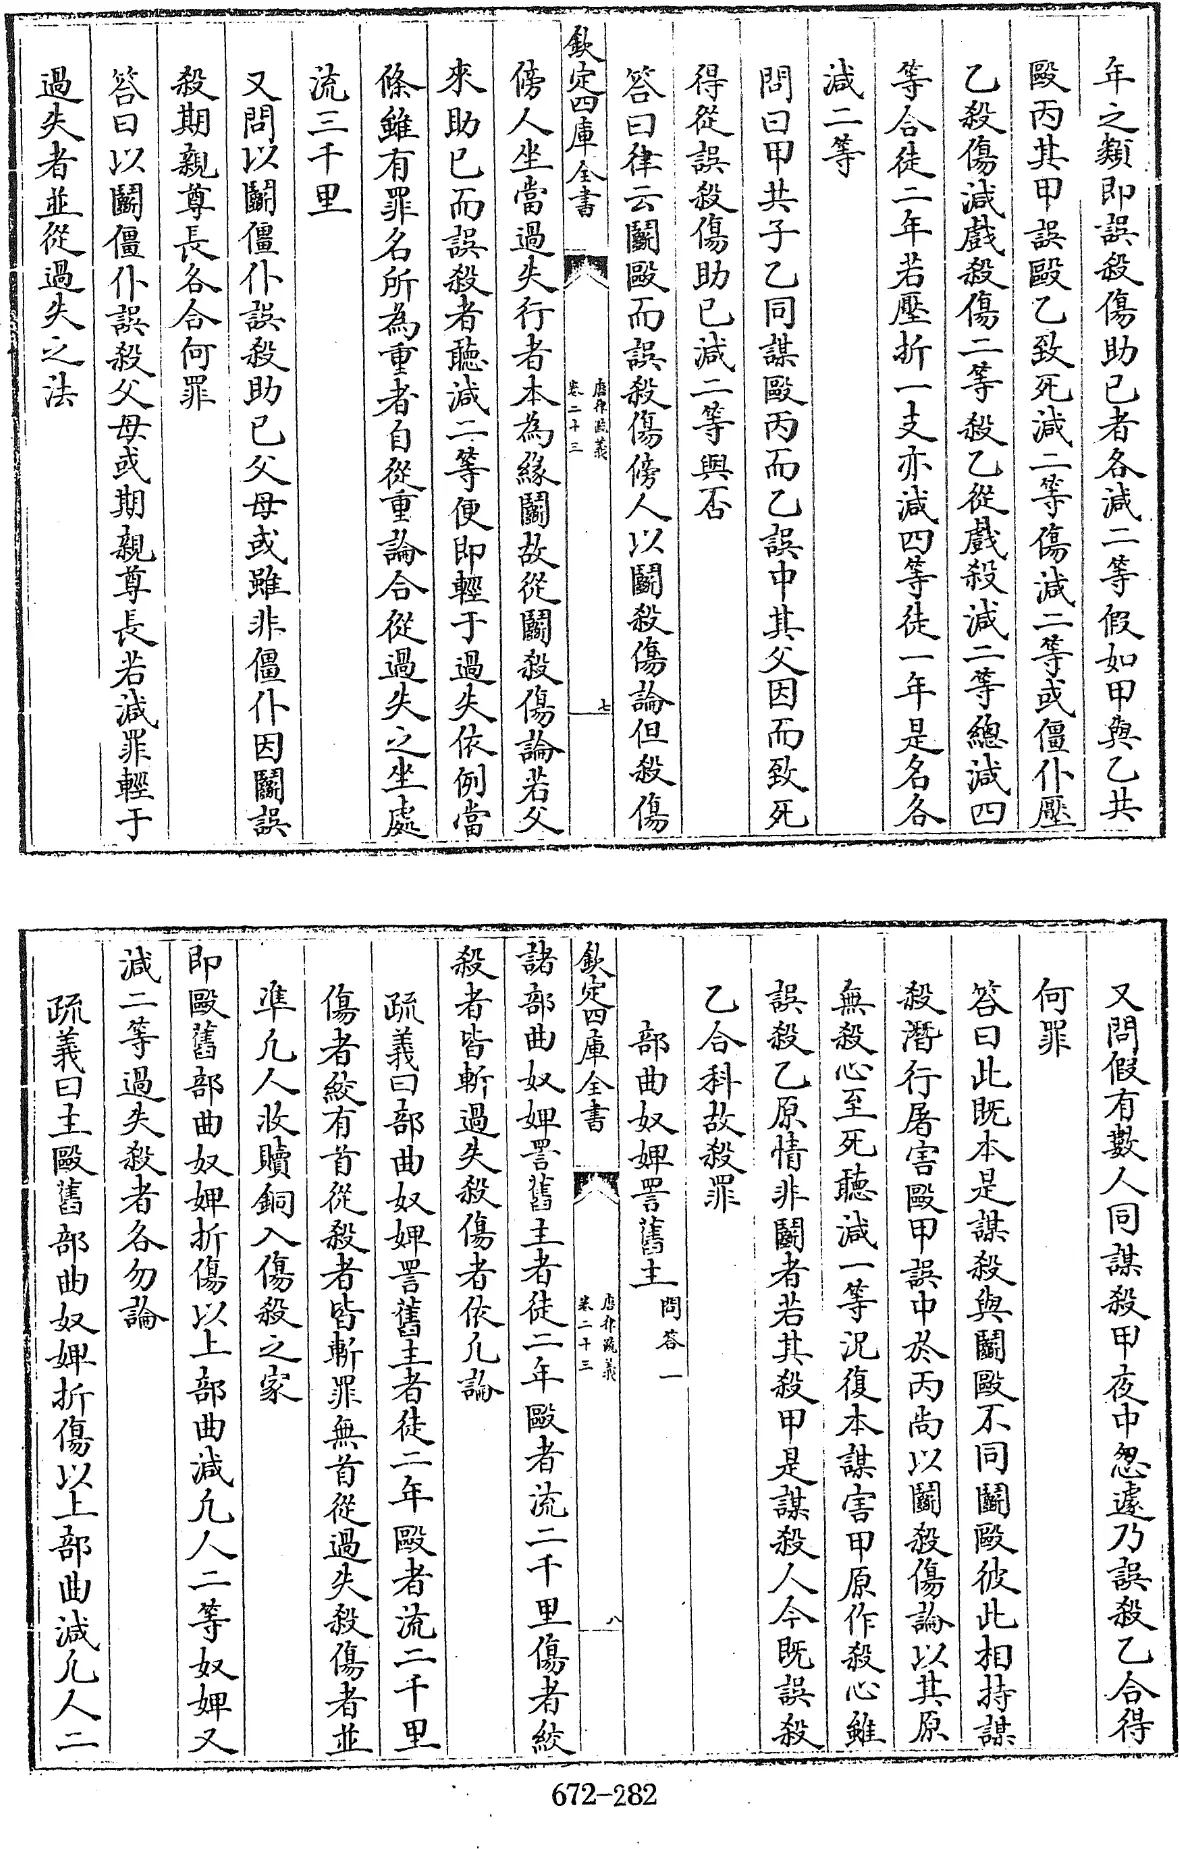 年之類即誤殺傷助己者各減二等假如甲與乙共
毆丙其甲誤毆乙致死減二等傷減二等或僵仆壓
乙殺傷減戲殺傷二等殺乙從戲殺減二等總減四
等合徒二年若壓折一支亦減四等徒一年是名各
減二等
問曰甲共子乙同謀毆丙而乙誤中其父因而致死
得從誤殺傷助已減二等與否
答曰律云鬭毆而誤殺傷傍人以鬭殺傷論但殺傷
欽定四庫全書
唐律疏義
卷二十三
七
傍人坐當過失行者本為緣鬭故從鬭殺傷論若父
來助已而誤殺者聽減二等便即輕于過失依例當
條雖有罪名所為重者自從重論合從過失之坐處
流三千里
又問以鬭僵仆誤殺助已父母或雖非僵仆因鬭誤
殺期親尊長各合何罪
答曰以鬭僵仆誤殺父母或期親尊長若減罪輕于
過失者並從過失之法
又問假有數人同謀殺甲夜中怱遽乃誤殺乙合得
何罪
答曰此既本是謀殺與鬭毆不同鬭毆彼此相持謀
殺潛行屠害毆甲誤中於丙尚以鬭殺傷論以其原
無殺心至死聽減一等況復本謀害甲原作殺心雖
誤殺乙原情非鬭者若其殺甲是謀殺人今既誤殺
乙合科故殺罪
部曲奴婢詈舊主問答一
欽定四庫全書
唐律疏義
卷二十三
八
諸部曲奴婢詈舊主者徒二年毆者流二千里傷者絞
殺者皆斬過失殺傷者依凡論
疏義曰部曲奴婢詈舊主者徒二年毆者流二千里
傷者絞有首從殺者皆斬罪無首從過失殺傷者並
準凡人收贖銅入傷殺之家
即毆舊部曲奴婢折傷以上部曲減凡人二等奴婢又
減二等過失殺者各勿論
疏義曰主毆舊部曲奴婢折傷以上部曲減凡人二
672-282